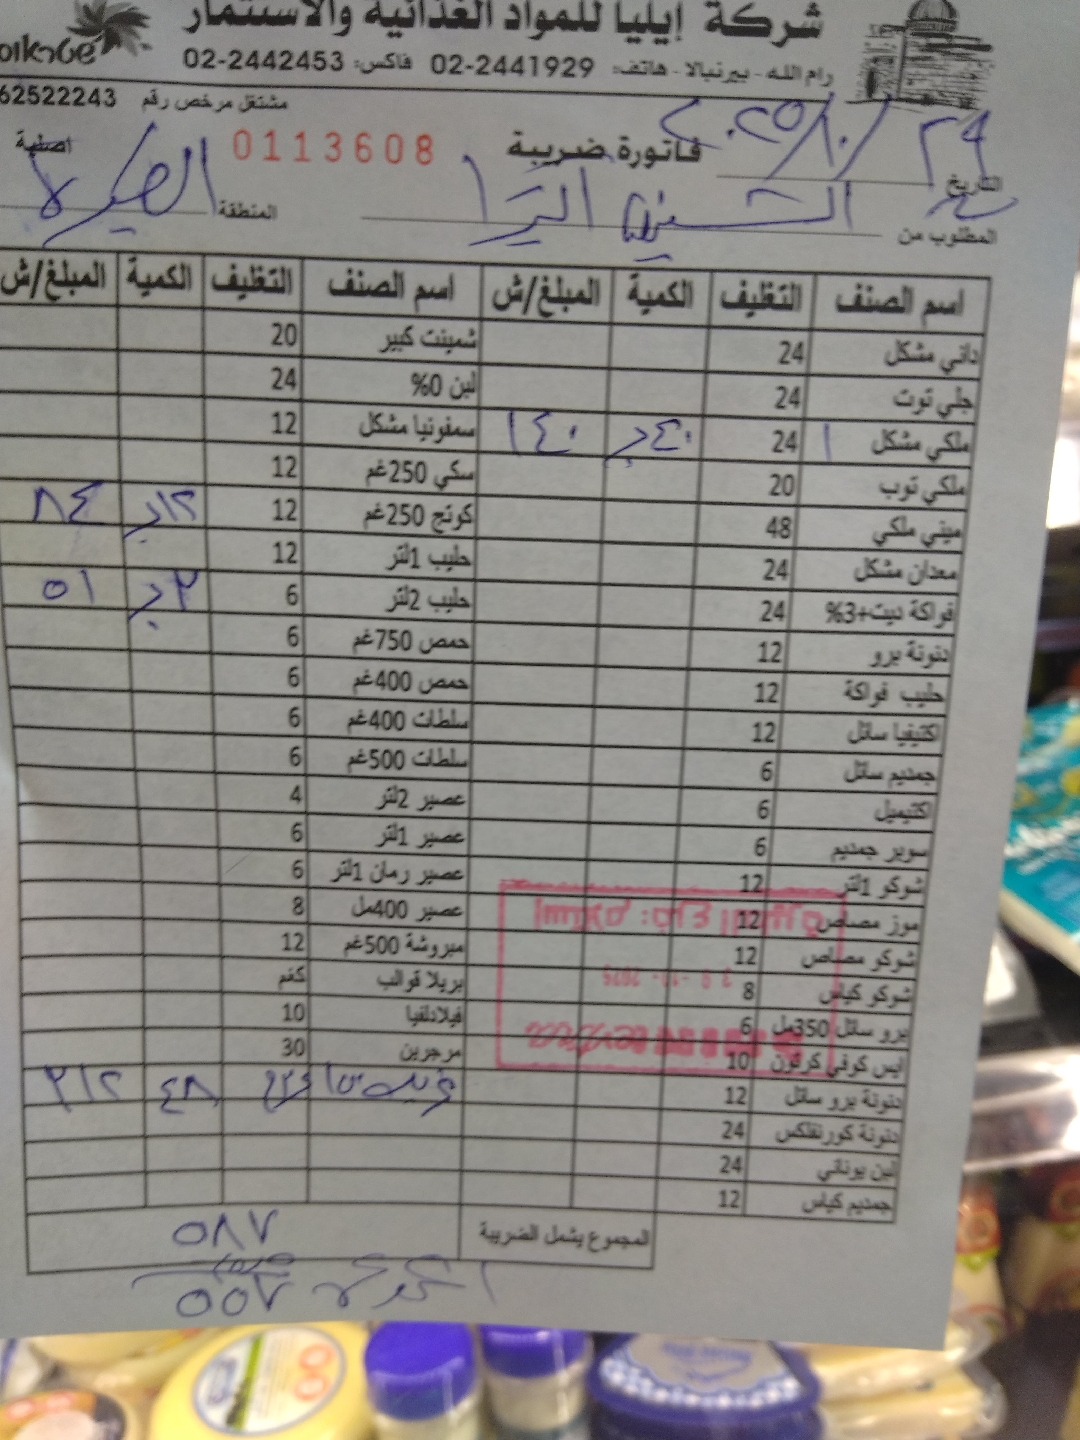 شركة إيليا للمواد الغذائية والاستثمار
رام الله - بيرنبالا - هاتف: 02-2441929 فاكس: 02-2442453
مشتغل مرخص رقم 62522243
فاتورة ضريبة 0113608 اصلية
التاريخ ٢٩/١٠/٢٠٢٥
المطلوب من المنطقة
اسم الصنف التغليف الكمية المبلغ/ش اسم الصنف التغليف الكمية المبلغ/ش
داني مشكل 24 شمينت كبير 20
جلي توت 24 لبن 0% 24
ملكي مشكل ١ 24 ٤٠ ١٤٠ سمفونيا مشكل 12
ملكي توب 20 سكي 250غم 12
ميني ملكي 48 كوتج 250غم 12 ١٢ ٨٤
معدان مشكل 24 حليب 1لتر 12
فواكة ديت+3% 24 حليب 2لتر 6 ٣ ٥١
دنونة برو 12 حمص 750غم 6
حليب فواكة 12 حمص 400غم 6
اكتيفيا سائل 12 سلطات 400غم 6
جمديم سائل 6 سلطات 500غم 6
اكتيميل 6 عصير 2لتر 4
سوبر جمديم 6 عصير 1لتر 6
شوكو 1لتر 12 عصير رمان 1لتر 6
موز مصاص 12 عصير 400مل 8
شوكو مصاص 12 مبروشة 500غم 12
شوكو كياس 8 بريلا قوالب كغم
برو سائل 350مل 6 فيلادلفيا 10
ايس كوفي كرتون 10 مرجرين 30
دنونة برو سائل 12 ٤٨ ٣١٢
دنونة كورنفلكس 24
لبن يوناني 24
جمديم كياس 12
المجموع يشمل الضريبة ٥٨٧
٥٥٧